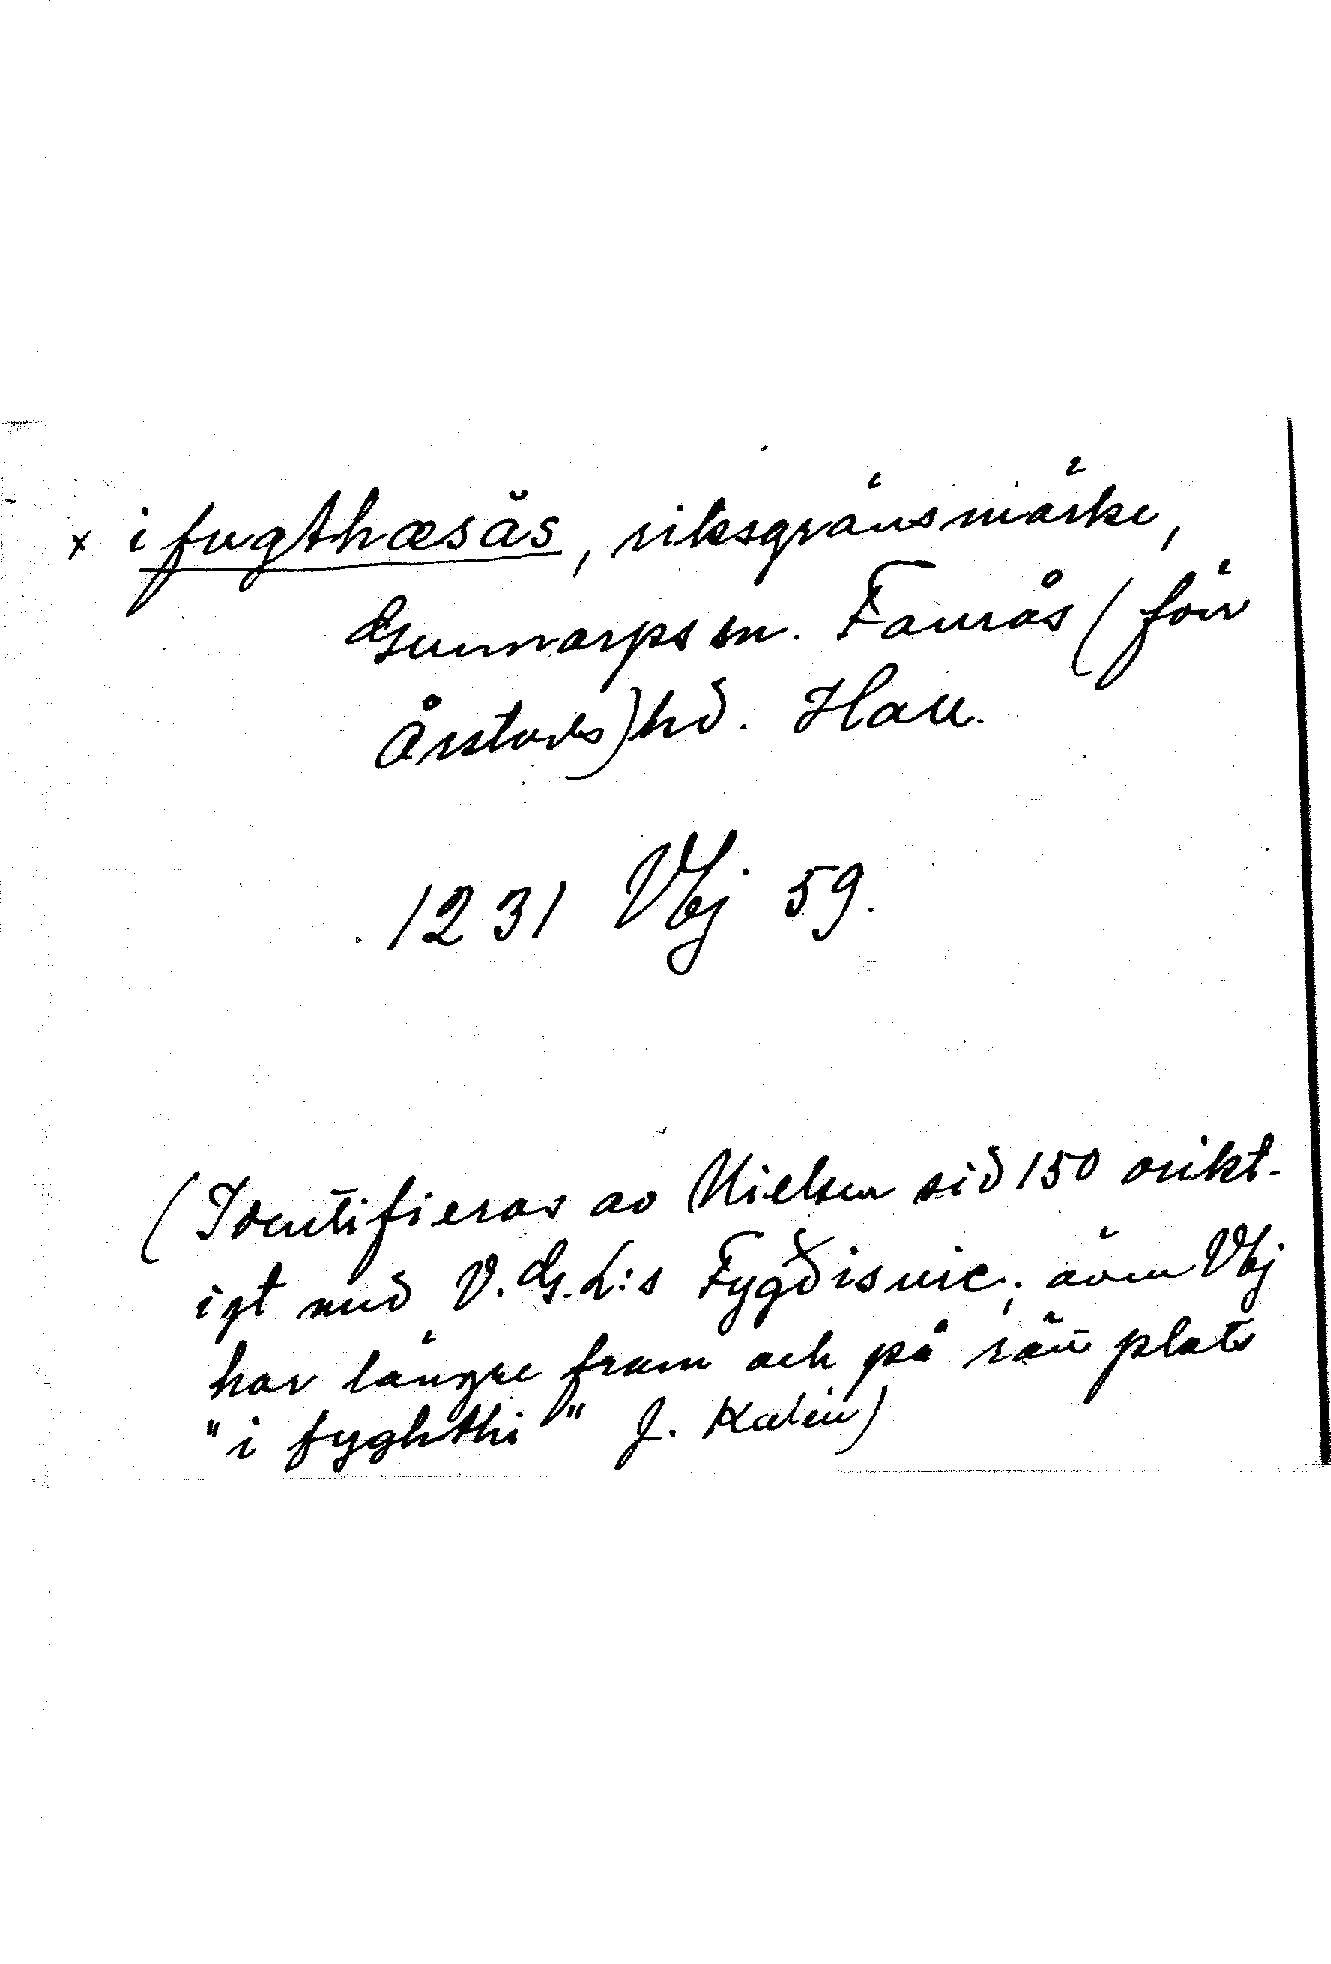 x i fugthæsås, riksgränsmärke,
Gunnarps sn. Faurås (förr
Årstads) hd. Hall.
1231 Vbj 59.
(Identifieras av Nielsen sid 150 orikt-
igt med V.G.L:s Fygðisnic; även Vbj
har längre fram och på rätt plats
"i fyghthi" J. Kalén)